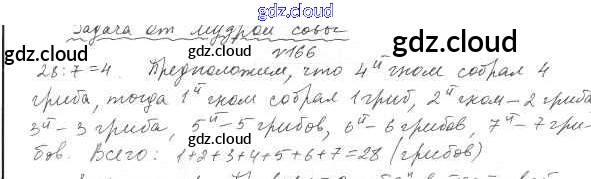 gdz.cloud
Задача от мудрой совы
gdz.cloud
gdz.cloud
gdz.cloud
№166
28:7=4. Предположим, что 4й гном собрал 4
гриба, тогда 1й гном собрал 1 гриб, 2й гном – 2 гриба
3й – 3 гриба, 5й – 5 грибов, 6й – 6 грибов, 7й – 7 гри-
gdz.cloud
gdz.cloud
бов. Всего: 1+2+3+4+5+6+7=28 (грибов)